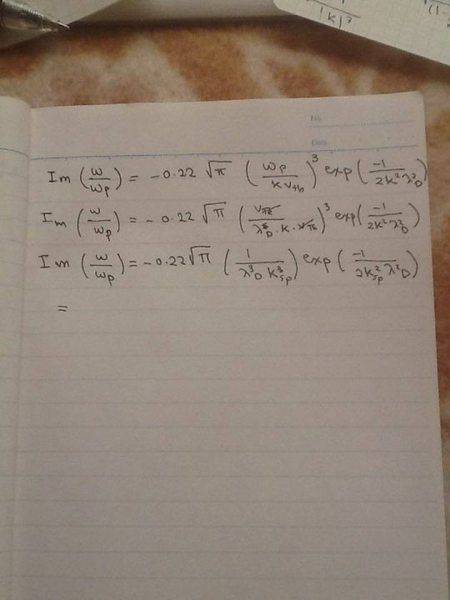 |k|³
(1-
No.
Date
Im (ω/ωp) = -0.22 √π (ωp/k vth)³ exp(-1/2k²λ²D)
Im (ω/ωp) = -0.22 √π (vth/λD k·vth)³ exp(-1/2k²λ²D)
Im (ω/ωp) = -0.22√π (1/λ³D k³sp) exp(-1/2k²sp λ²D)
=